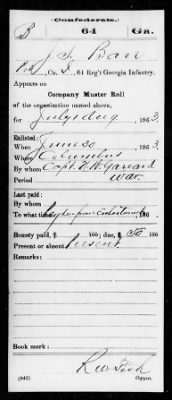 Confederate.
B 64 Ga.
J. T. Barr
Co. 64 Reg't Georgia Infantry.
Appears on
Company Muster Roll
of the organization named above,
for July & Aug, 1863.
Enlisted:
When June 30, 1863.
Where Columbus
By whom Capt.
Period War
Last paid:
By whom
To what time from Enlistment, 186 .
Bounty paid $ 100; due, $ 50 100
Present or absent Present
Remarks:
Book mark:
(642) Copyist.